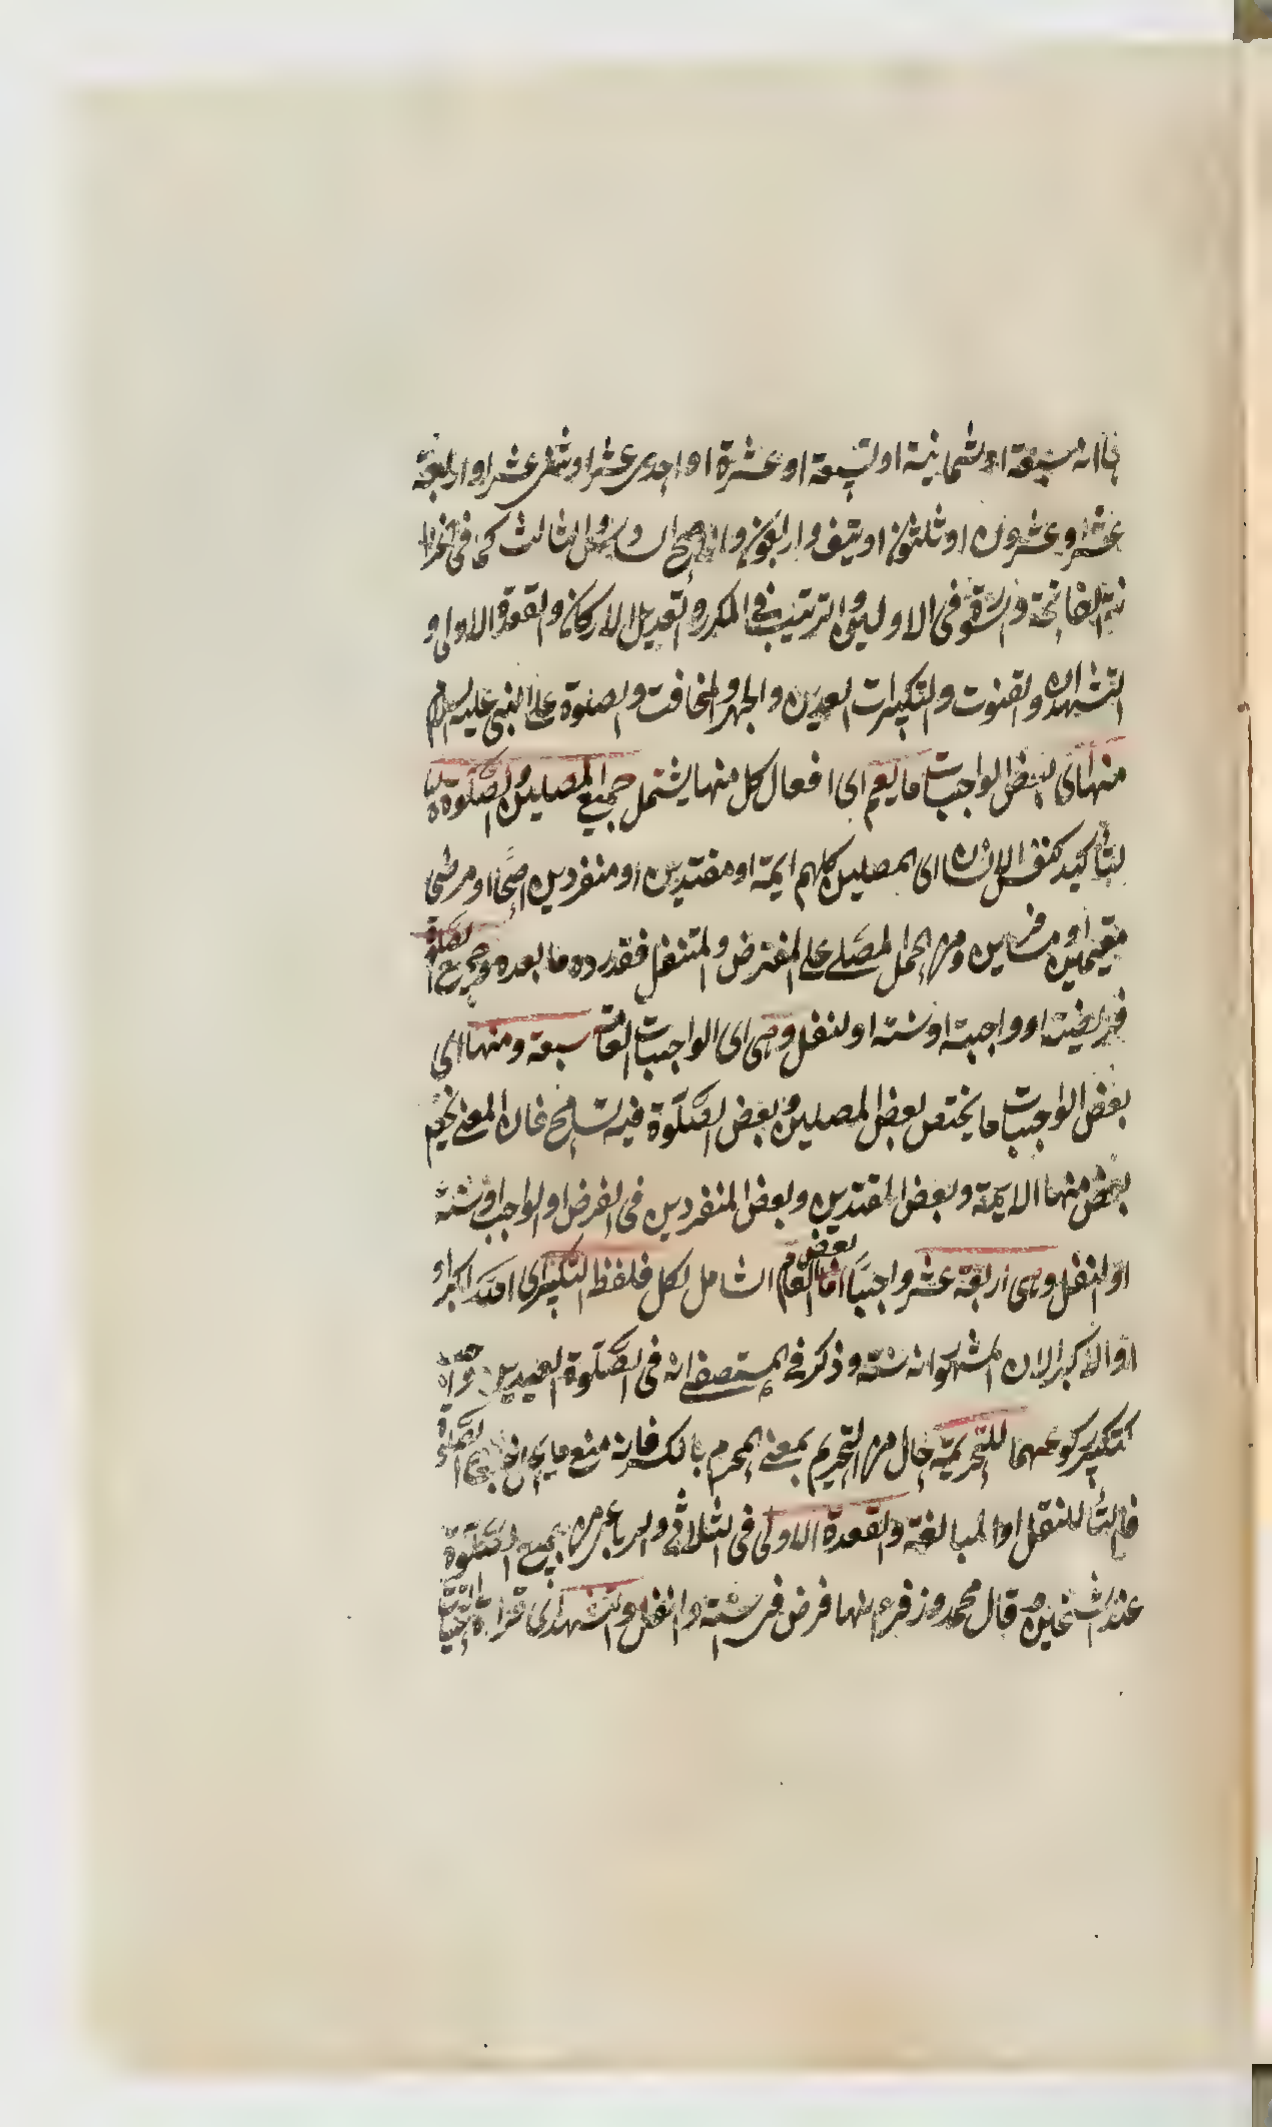 بانه سبعة او ثمانية او تسعة او عشرة او احدى عشر او ثنى عشر او اربعة
عشر و عشرون او ثلثون او نيف و اربعون و الاصح ان الثالث كما فى
الفاتحة و السورة فى الاوليين و الترتيب فى المكرر و التعديل الاركان و القعدة الاولى و
التشهدان و القنوت و التكبيرات العيدين و الجهر و المخافت و الصلوة على النبى عليه السلام
منها اى بعض الواجبات ما يعم اى افعال كل منها يشتمل جميع المصلين و الصلوة
لتأكيد كنفس الانسان اى المصلين كلهم ايمة او مقتدين او منفردين اصحا او مرضى
مقيمين او مسافرين و من الحمل المصلى على المفترض و المتنفل فقد رده ما بعده و جميع الصلوة
فريضية او واجبة او سنة او لنفل و هى اى الواجبات العامة سبعة و منها اى
بعض الواجبات ما يختص بعض المصلين و بعض الصلوة فيه تسامح فان المعنى يعم
بعض منها الايمة و بعض المقتدين و بعض المنفردين فى الفرض او الواجب او سنة
او النفل و هى اربعة عشر واجبا اما بعض العام الشامل لكل فلفظ التكبير اى الله اكبر او
او الاكبر الان المشهور انه سنة و ذكر فى المستصفى انه فى الصلوة العيدين
كتكبير ركوعهما للتحريمة حال من التحريم بمعنى المحرم بالكسر فانه منع ما الصلوة
فالتا للنقل او المبالغة و القعدة الاولى فى الثلاثى و الرباعى من جميع الصلوة
عند الشيخين و قال محمد و زفر انها فرض فى سنة و النفل و التشهد اى قراءة التحيات